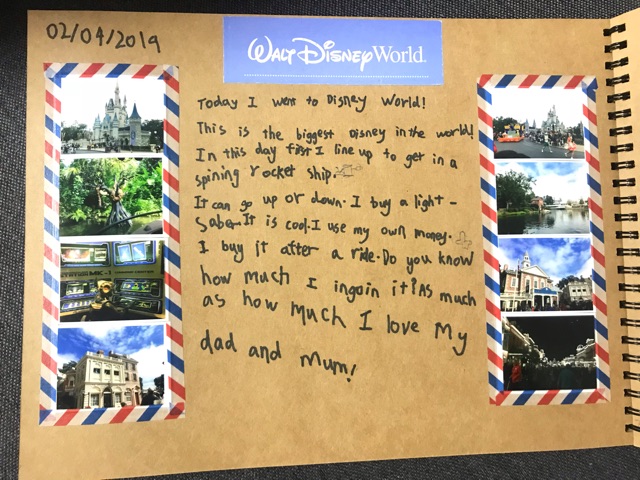 02/04/2019
WALT DISNEY World
Today I went to Disney World!
This is the biggest Disney in the world!
In this day first I line up to get in a
spining rocket ship.
It can go up or down. I buy a light-
saber. It is cool. I use my own money.
I buy it after a ride. Do you know
how much I ingoin it? As much
as how much I love my
dad and mum!